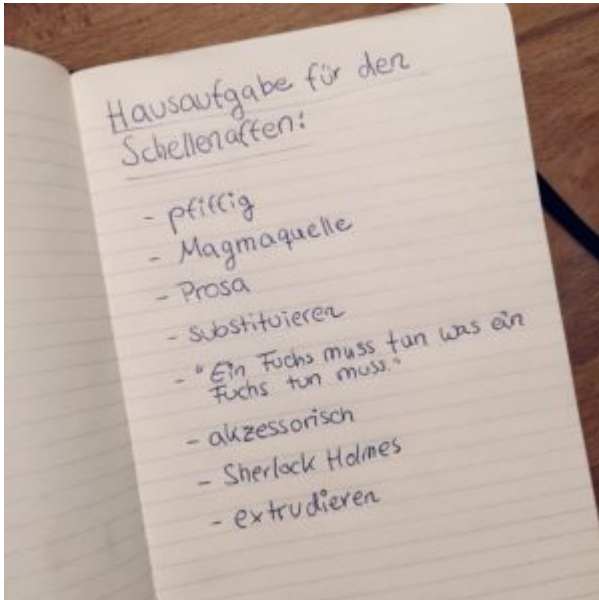 Hausaufgabe für den
Schellenaffen:
- pfiffig
- Magmaquelle
- Prosa
- substituieren
- "Ein Fuchs muss tun was ein
Fuchs tun muss."
- akzessorisch
- Sherlock Holmes
- extrudieren